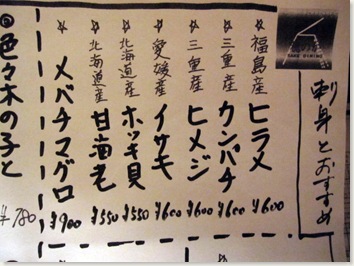 刺身とおすすめ
☆福島産ヒラメ ¥600
☆三重産カンパチ ¥600
☆三重産ヒメジ ¥600
☆愛媛産イサキ ¥600
☆北海道産ホッキ貝 ¥550
☆北海道産甘海老 ¥550
☆メバチマグロ ¥900
色々木の子と ¥780